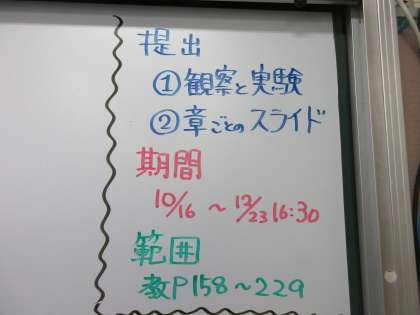 提出
①観察と実験
②章ごとのスライド
期間
10/16 ~ 12/23 16:30
範囲
教P158~229